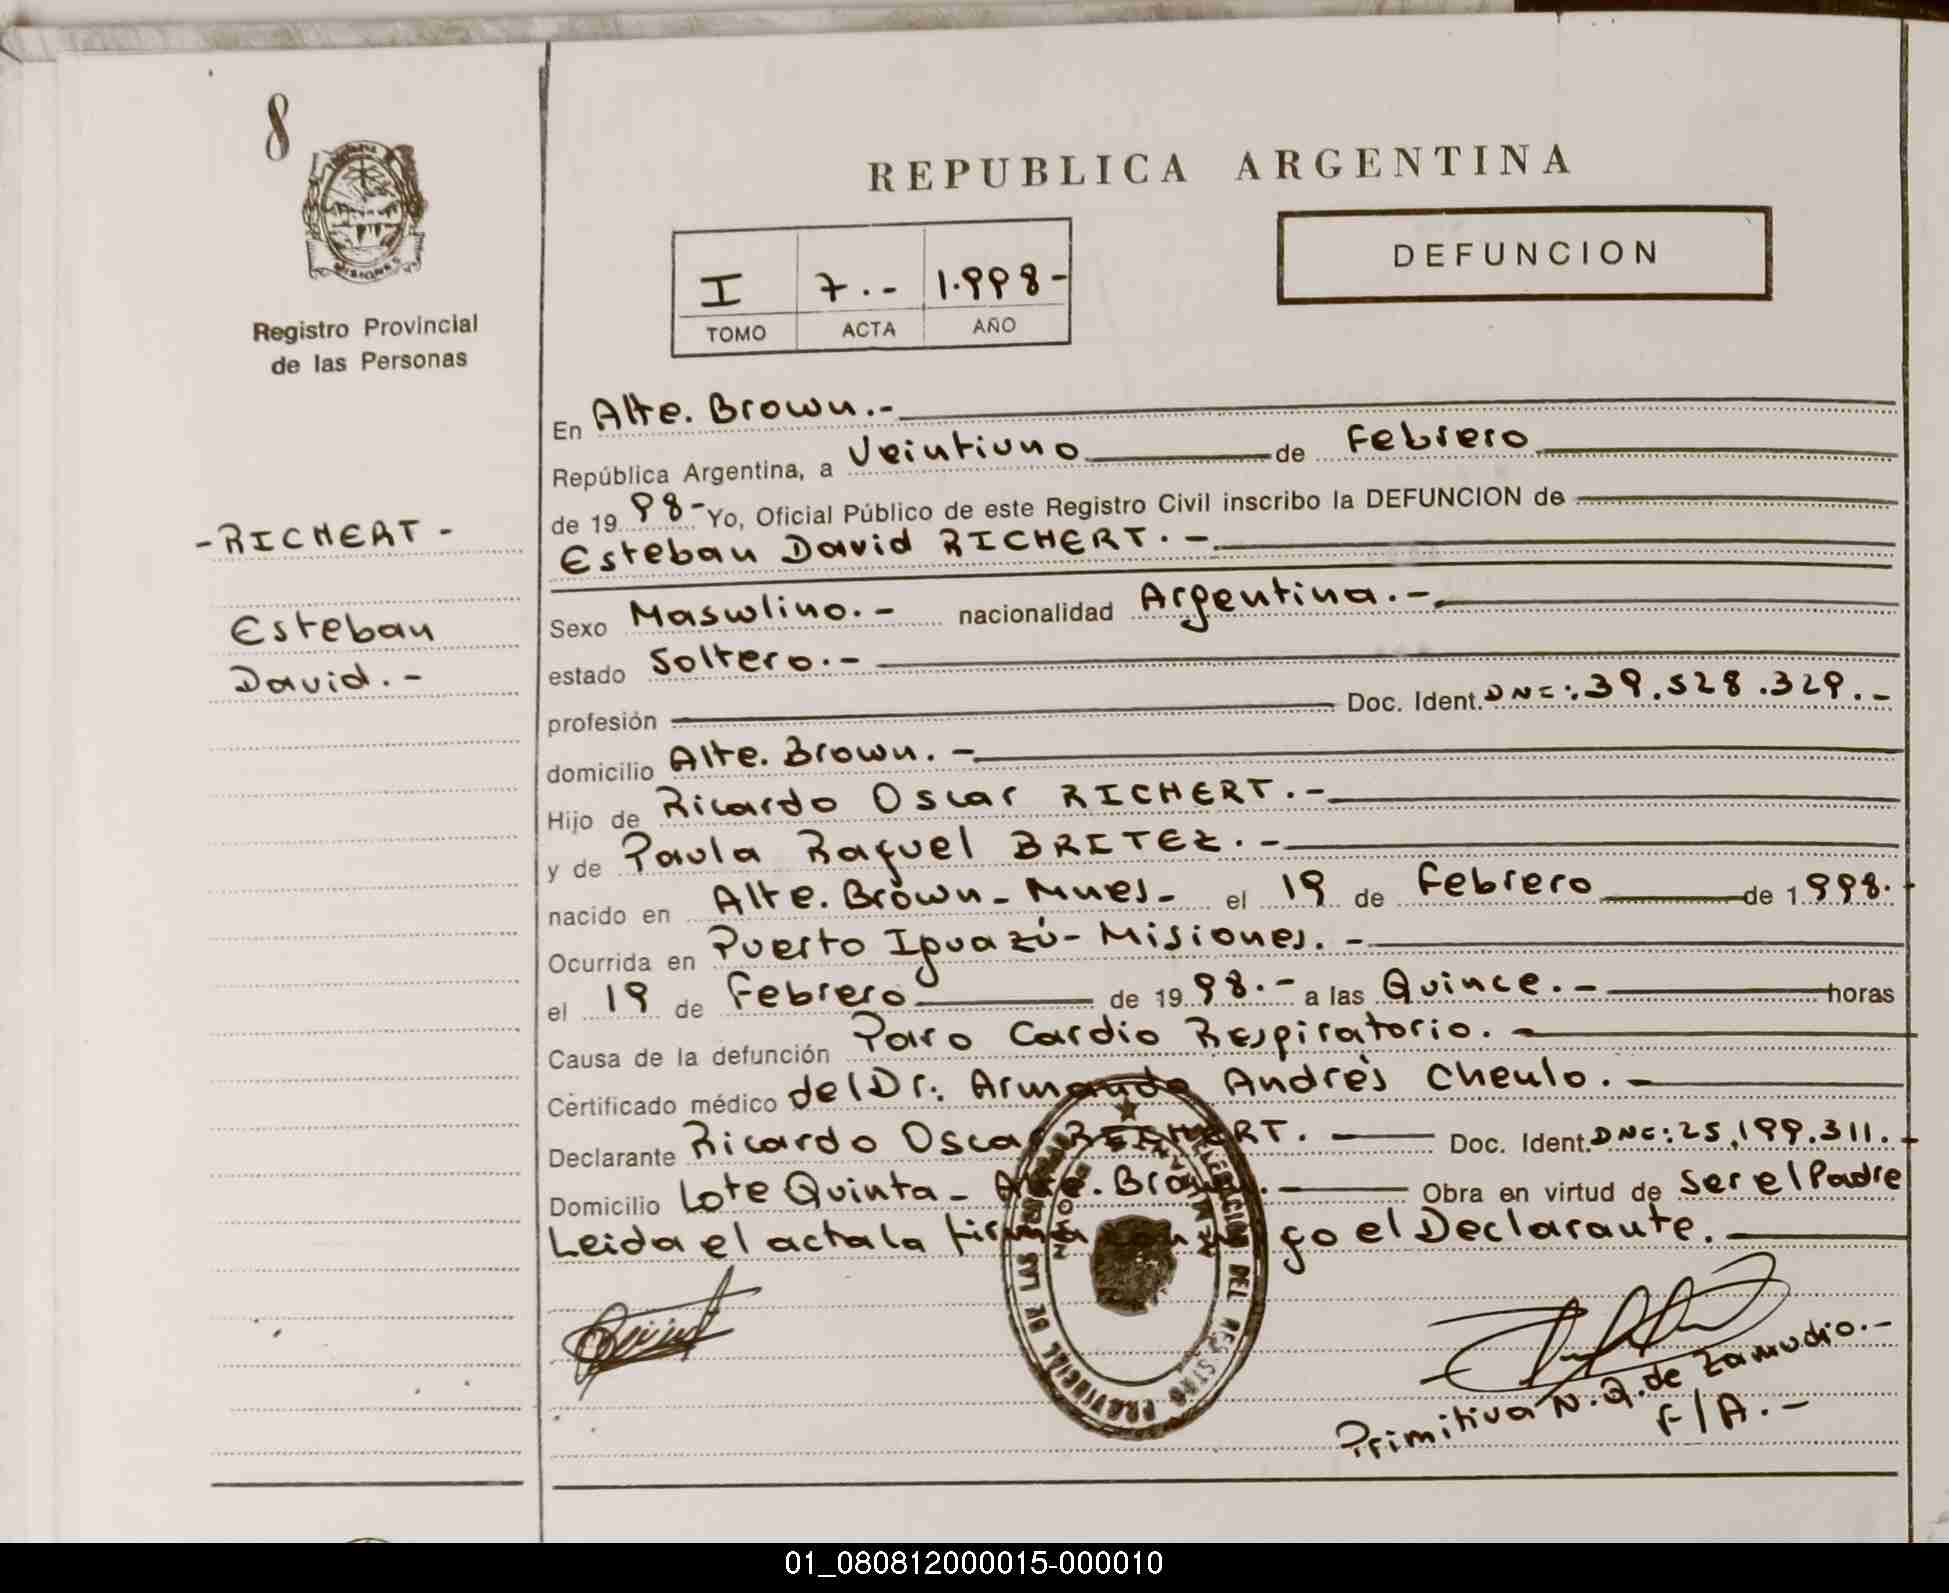 8
MISIONES
Registro Provincial
de las Personas
-RICHERT-
Esteban
David.-
REPUBLICA ARGENTINA
DEFUNCION
I 7.- 1.998-
TOMO ACTA AÑO
En Alte. Brown.-
República Argentina, a Veintiuno de Febrero
de 19 98- Yo, Oficial Público de este Registro Civil inscribo la DEFUNCION de
Esteban David RICHERT.-
Sexo Masculino.- nacionalidad Argentina.-
estado Soltero.-
profesión Doc. Ident. DNI:39.528.329.-
domicilio Alte. Brown.-
Hijo de Ricardo Oscar RICHERT.-
y de Paula Raquel BRITEZ.-
nacido en Alte. Brown-Mnes- el 19 de Febrero de 1.998.-
Ocurrida en Puerto Iguazú-Misiones.-
el 19 de Febrero de 19 98.- a las Quince.- horas
Causa de la defunción Paro Cardio Respiratorio.-
Certificado médico del Dr. Armando Andrés Chenlo.-
Declarante Ricardo Oscar RICHERT. Doc. Ident. DNI:25.199.311.-
Domicilio Lote Quinta- Alte. Brown. Obra en virtud de ser el Padre
Leida el acta la firma conmigo el Declarante.
Primitiva N. Q. de Zamudio.-
F/A.-
01_080812000015-000010